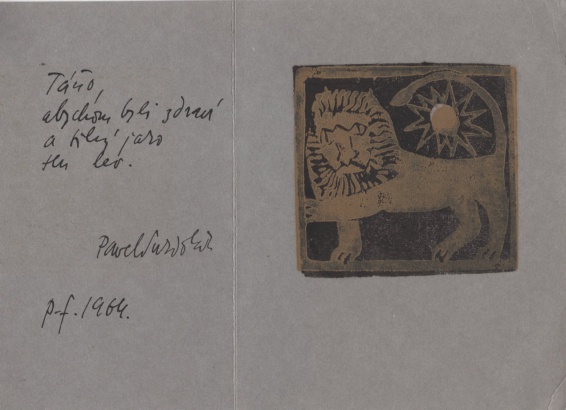 Táňo,
abychom byli zdraví
a silný jako
ten lev.
Pavel Sukdolák
p.f. 1964.